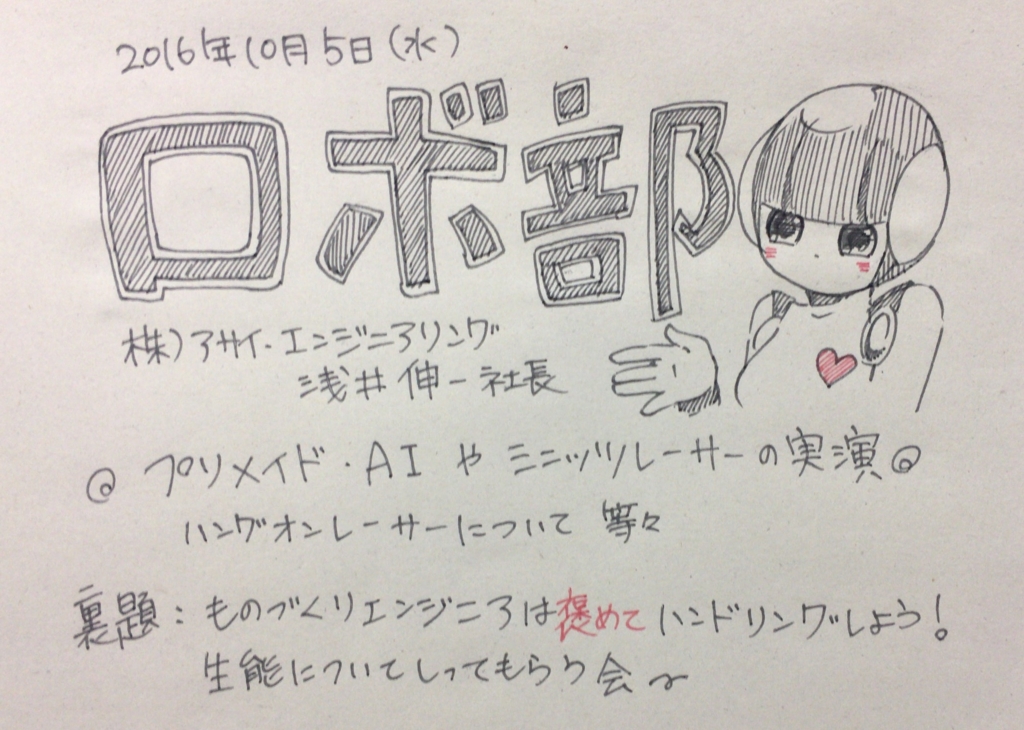 2016年10月5日(水)
ロボ部
株)アサイ・エンジニアリング
浅井伸一社長
@ プリメイド・AI や ミニッツレーサーの実演@
ハングオンレーサーについて 等々
裏題:ものづくりエンジニアは褒めてハンドリングしよう!
生能についてしってもらう会〜